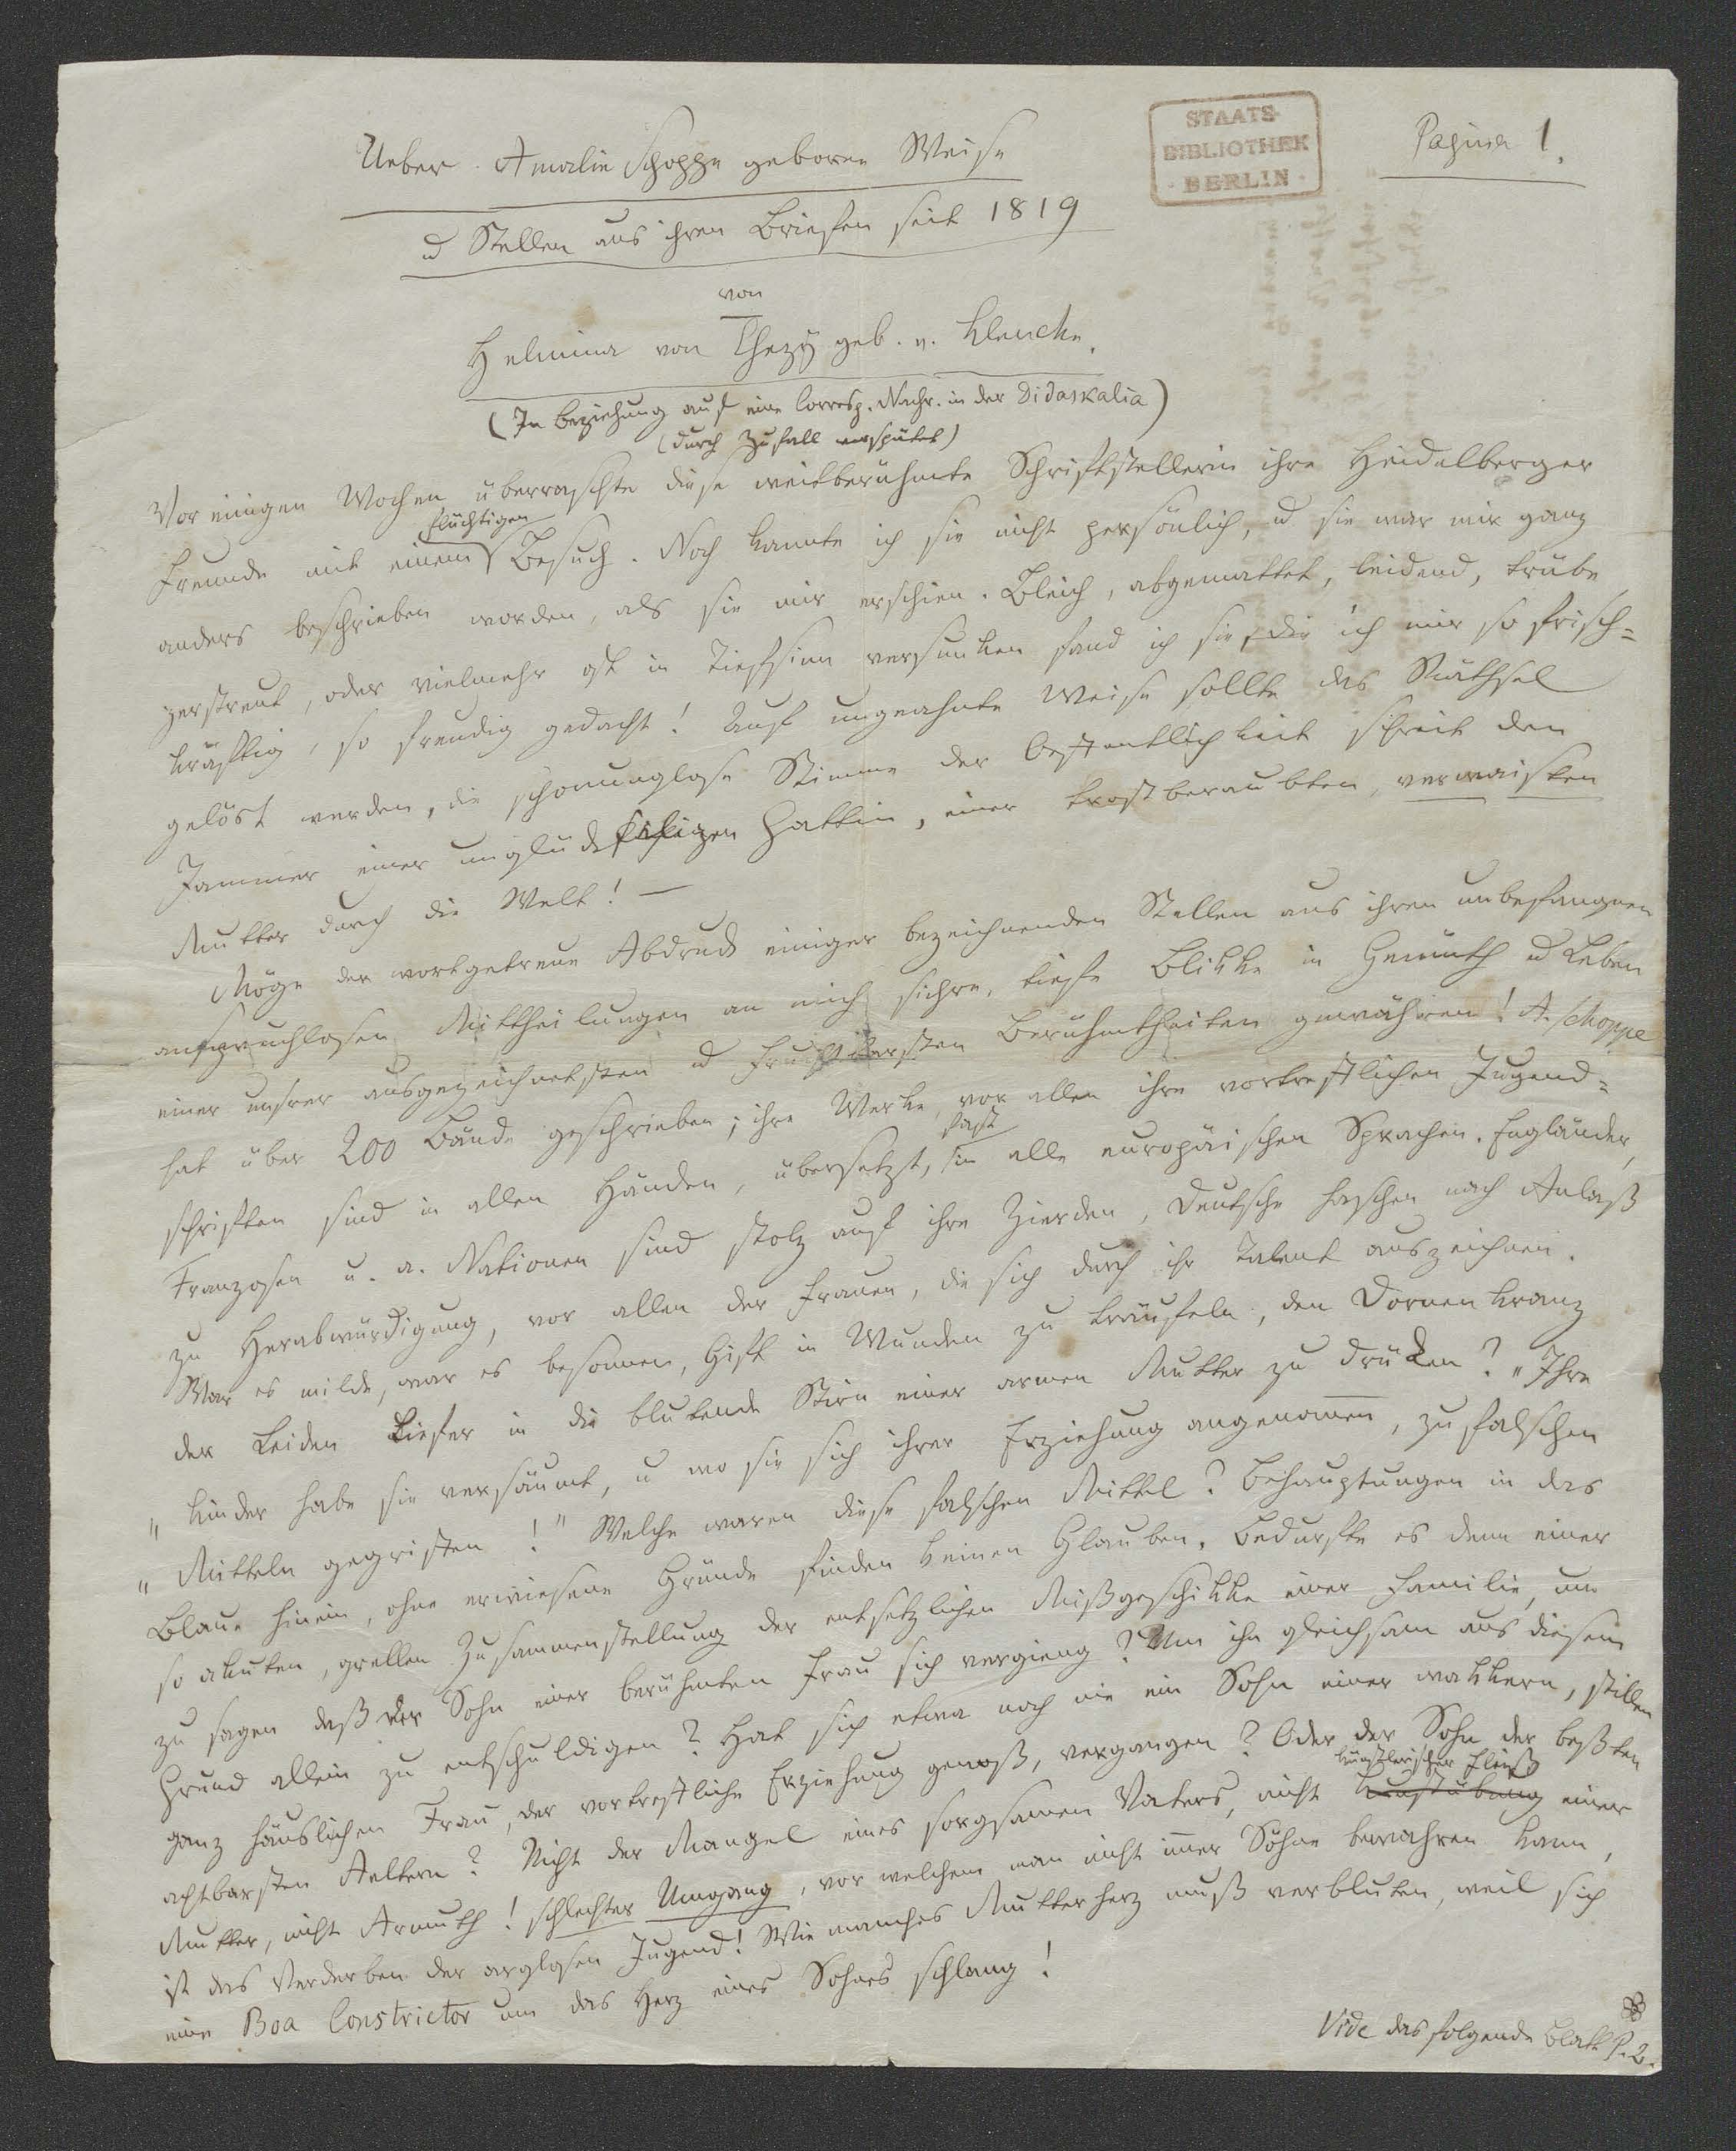 Pagina 1.
STAATS-
BIBLIOTHEK
· BERLIN ·
Ueber Amalie Schoppe geborne Weise
u Stellen aus ihren Briefen seit 1819
von
Helmina von Chezÿ geb. v. Klencke.
(In Beziehung auf eine Corresp. Nachr. in der Didaskalia)
(durch Zufall verspätet)
Vor einigen Wochen überraschte diese weitberühmte Schriftstellerin ihre Heidelberger
Freunde mit einem flüchtigen Besuch. Noch kannte ich sie nicht persönlich, u sie war mir ganz
anders beschrieben worden, als sie mir erschien. Bleich, abgemattet, leidend, trübe
zerstreut, oder vielmehr oft in Tiefsinn versunken fand ich sie, die ich mir so frisch=
kräftig, so freudig gedacht! Auf ungeahnte Weise sollte das Räthsel
gelöst werden, die schonungslose Stimme der Oeffentlichkeit schreit den
Jammer einer unglückseligen Gattin, einer trostberaubten, verwaisten
Mutter durch die Welt! —
Möge der wortgetreue Abdruck einiger bezeichnenden Stellen aus ihren unbefangnen
anspruchlosen Mittheilungen an mich sichre, tiefe Blikke in Gemüth u Leben
einer unsrer ausgezeichnetsten u fruchtbarsten Berühmtheiten gewähren! A. Schoppe
hat über 200 Bände geschrieben; ihre Werke, vor allen ihre vortrefflichen Jugend=
schriften sind in allen Händen, übersetzt, fast in alle europäischen Sprachen. Engländer,
Franzosen u. a. Nationen sind stolz auf ihre Zierden, Deutsche haschen nach Anlaß
zu Herabwürdigung, vor allen der Frauen, die sich durch ihr Talent auszeichnen.
War es milde, war es besonnen, Gift in Wunden zu träufeln, den Dornenkranz
der Leiden tiefer in die blutende Stirn einer armen Mutter zu drücken? „Ihre
„Kinder habe sie versäumt, u wo sie sich ihrer Erziehung angenommen, zu falschen
„Mitteln gegriffen!" Welche waren diese falschen Mittel? Behauptungen in das
Blaue hinein, ohne erwiesene Gründe finden keinen Glauben. Bedurfte es denn einer
so akuten, grellen Zusammenstellung der entsetzlichen Mißgeschikke einer Familie, um
zu sagen daß der Sohn einer berühmten Frau sich vergieng? Um ihn gleichsam aus diesem
Grund allein zu entschuldigen? Hat sich etwa noch nie ein Sohn einer wakkern, stillen
ganz häuslichen Frau, der vortreffliche Erziehung genoß, vergangen? Oder der Sohn der beßten
achtbarsten Aeltern? Nicht der Mangel eines sorgsamen Vaters, nicht Kunstübung künstlerischer Fleiß einer
Mutter, nicht Armuth! schlechter Umgang, vor welchem man nicht immer Söhne bewahren kann,
ist das Verderben der arglosen Jugend! Wie manches Mutterherz muß verbluten, weil sich
eine Boa Constrictor um das Herz eines Sohnes schlang!
Vide das folgende Blatt P. 2.